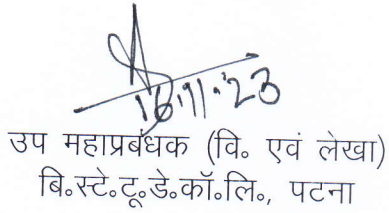 16.11.23
उप महाप्रबंधक (वि॰ एवं लेखा)
बि॰स्टे॰टू॰डे॰कॉ॰लि॰, पटना